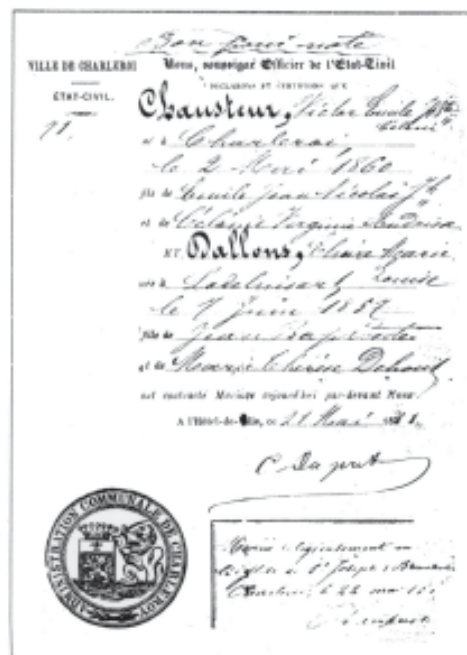 Bon pour note
VILLE DE CHARLEROI
ÉTAT-CIVIL.
Nous, soussigné Officier de l'État-Civil
DÉCLARONS ET CERTIFIONS QUE
Chausteur, Victor Emile
né à Charleroi
le 2 Mai 1860
fils de Emile Jean Nicolas Jh
et de Célanie Virginie
ET Dallons, Claire Marie
Louise
née à Lodelinsart
le 7 Juin 1857
fille de Jean Baptiste
et de Marie Thérèse
ont contracté Mariage aujourd'hui par-devant Nous.
A l'Hôtel-de-Ville, ce 21 Mai
ADMINISTRATION COMMUNALE DE CHARLEROY
religieusement
St Joseph
le 22 mai